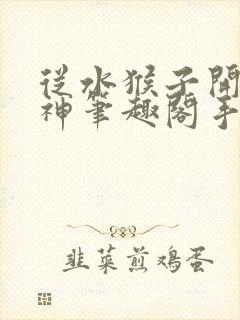 從水猴子開
神筆趣閣手
韭菜煎鸡蛋